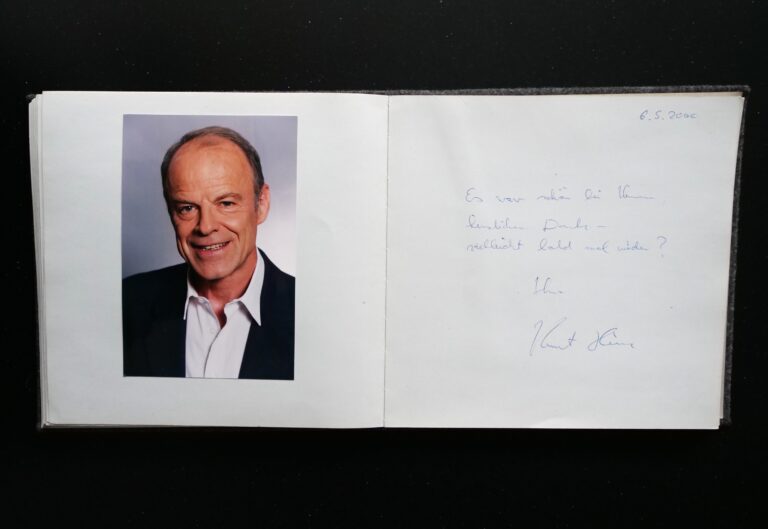 6.5.2000
Es war schön bei Ihnen
herzlichen Dank –
vielleicht bald mal wieder?
Ihr
Kurt